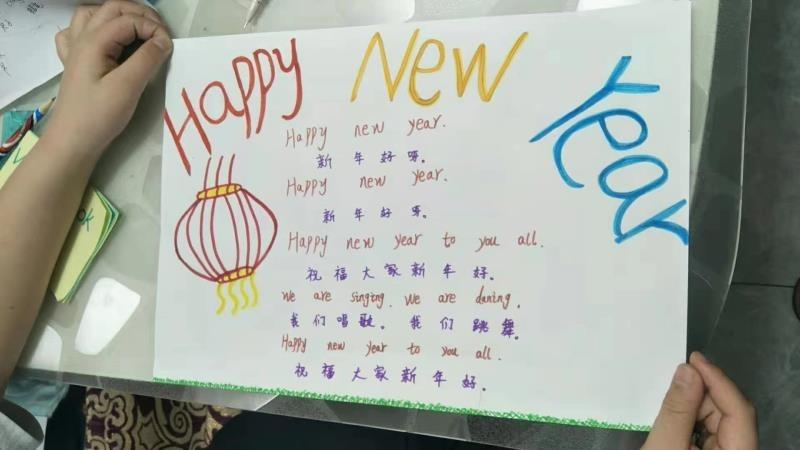 Happy New Year
Happy new year.
新年好呀。
Happy new year.
新年好呀。
Happy new year to you all.
祝福大家新年好。
We are singing. We are daning.
我们唱歌。我们跳舞。
Happy new year to you all.
祝福大家新年好。